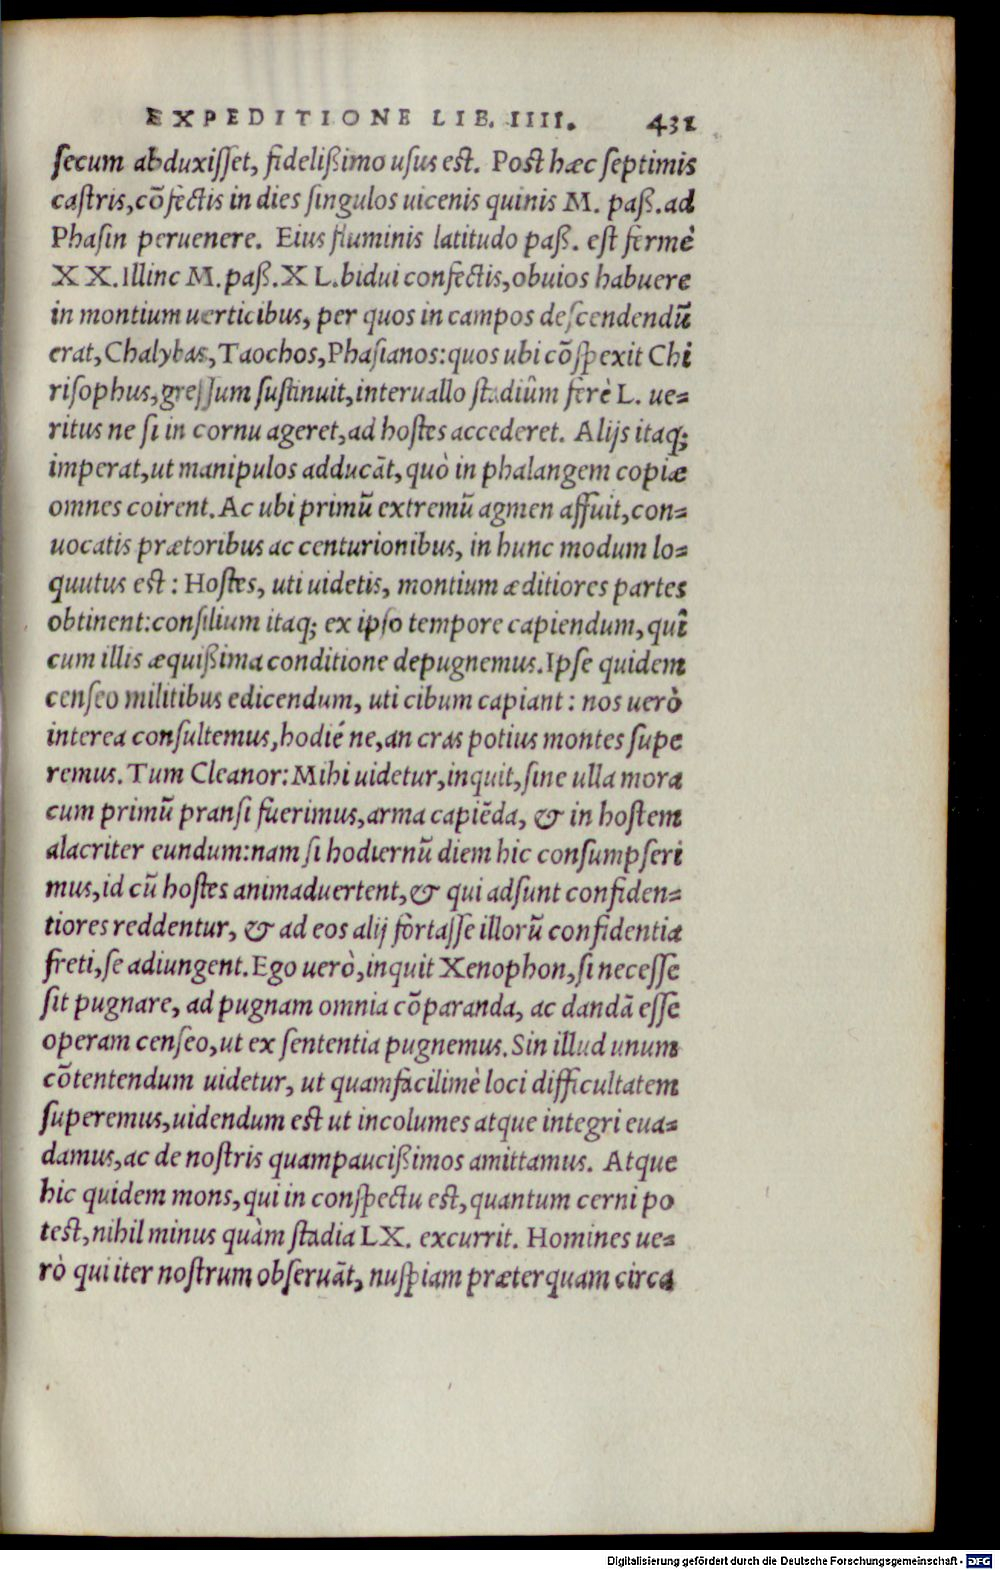 EXPEDITIONE LIB. IIII. 431
secum abduxisset, fidelißimo usus est. Post hæc septimis
castris, cõfectis in dies singulos uicenis quinis M. paß. ad
Phasin peruenere. Eius fluminis latitudo paß. est fermè
XX. Illinc M. paß. XL. bidui confectis, obuios habuere
in montium uerticibus, per quos in campos descendendũ
erat, Chalybas, Taochos, Phasianos: quos ubi cõspexit Chi
risophus, gressum sustinuit, interuallo stadiûm ferè L. ue=
ritus ne si in cornu ageret, ad hostes accederet. Alijs itaq;
imperat, ut manipulos adducãt, quò in phalangem copiæ
omnes coirent. Ac ubi primũ extremũ agmen affuit, con=
uocatis prætoribus ac centurionibus, in hunc modum lo=
quutus est: Hostes, uti uidetis, montium æditiores partes
obtinent: consilium itaq; ex ipso tempore capiendum, quî
cum illis æquißima conditione depugnemus. Ipse quidem
censeo militibus edicendum, uti cibum capiant: nos uerò
interea consultemus, hodié ne, an cras potius montes supe
remus. Tum Cleanor: Mihi uidetur, inquit, sine ulla mora
cum primũ pransi fuerimus, arma capiẽda, & in hostem
alacriter eundum: nam si hodiernũ diem hic consumpseri
mus, id cũ hostes animaduertent, & qui adsunt confiden=
tiores reddentur, & ad eos alij fortasse illorũ confidentia
freti, se adiungent. Ego uerò, inquit Xenophon, si necesse
sit pugnare, ad pugnam omnia cõparanda, ac dandã esse
operam censeo, ut ex sententia pugnemus. Sin illud unum
cõtentendum uidetur, ut quamfacilimè loci difficultatem
superemus, uidendum est ut incolumes atque integri eua=
damus, ac de nostris quampaucißimos amittamus. Atque
hic quidem mons, qui in conspectu est, quantum cerni po
test, nihil minus quàm stadia LX. excurrit. Homines ue=
rò qui iter nostrum obseruãt, nuspiam præterquam circa
Digitalisierung gefördert durch die Deutsche Forschungsgemeinschaft - DFG